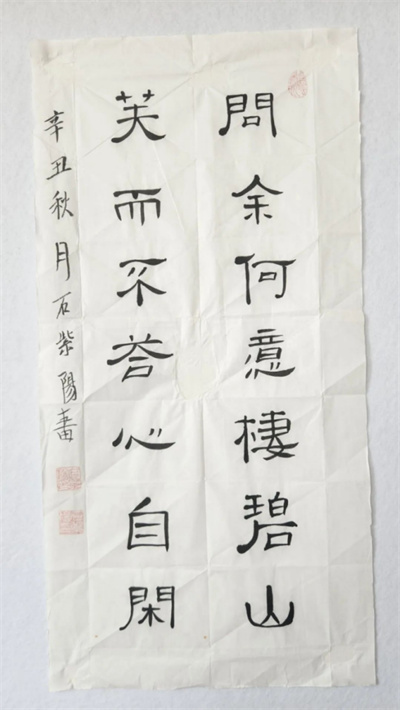 問余何意棲碧山
笑而不答心自閑
辛丑秋月石紫陽書